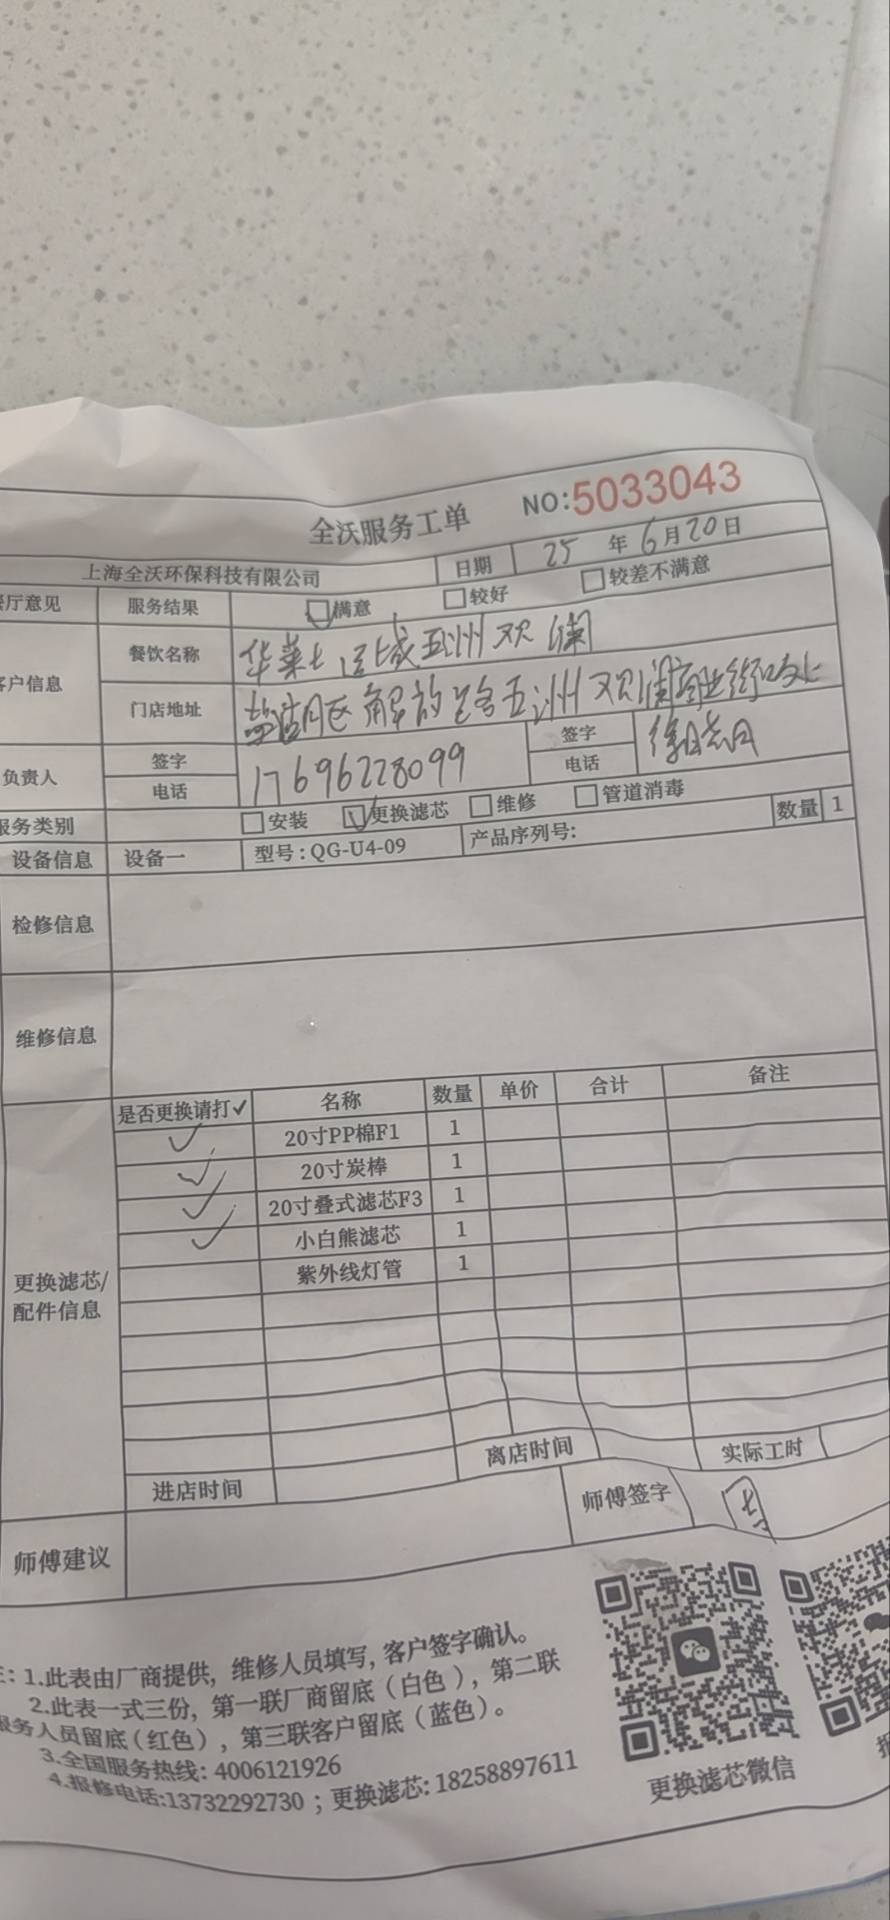 全沃服务工单 NO:5033043
上海全沃环保科技有限公司 日期 25年6月20日
厅意见 服务结果 满意 较好 较差不满意
户信息 餐饮名称 华莱士 城五洲观澜
门店地址 盐都区解放路五洲观澜商业街
负责人 签字 签字
电话 17696228099 电话
服务类别 安装 更换滤芯 维修 管道消毒
设备信息 设备一 型号:QG-U4-09 产品序列号: 数量 1
检修信息
维修信息
更换滤芯/配件信息
是否更换请打✓ 名称 数量 单价 合计 备注
✓ 20寸PP棉F1 1
✓ 20寸炭棒 1
✓ 20寸叠式滤芯F3 1
✓ 小白熊滤芯 1
紫外线灯管 1
进店时间 离店时间 实际工时
师傅建议 师傅签字
:1.此表由厂商提供,维修人员填写,客户签字确认。
2.此表一式三份,第一联厂商留底(白色),第二联
服务人员留底(红色),第三联客户留底(蓝色)。
3.全国服务热线:4006121926
4.报修电话:13732292730;更换滤芯:18258897611
更换滤芯微信
报